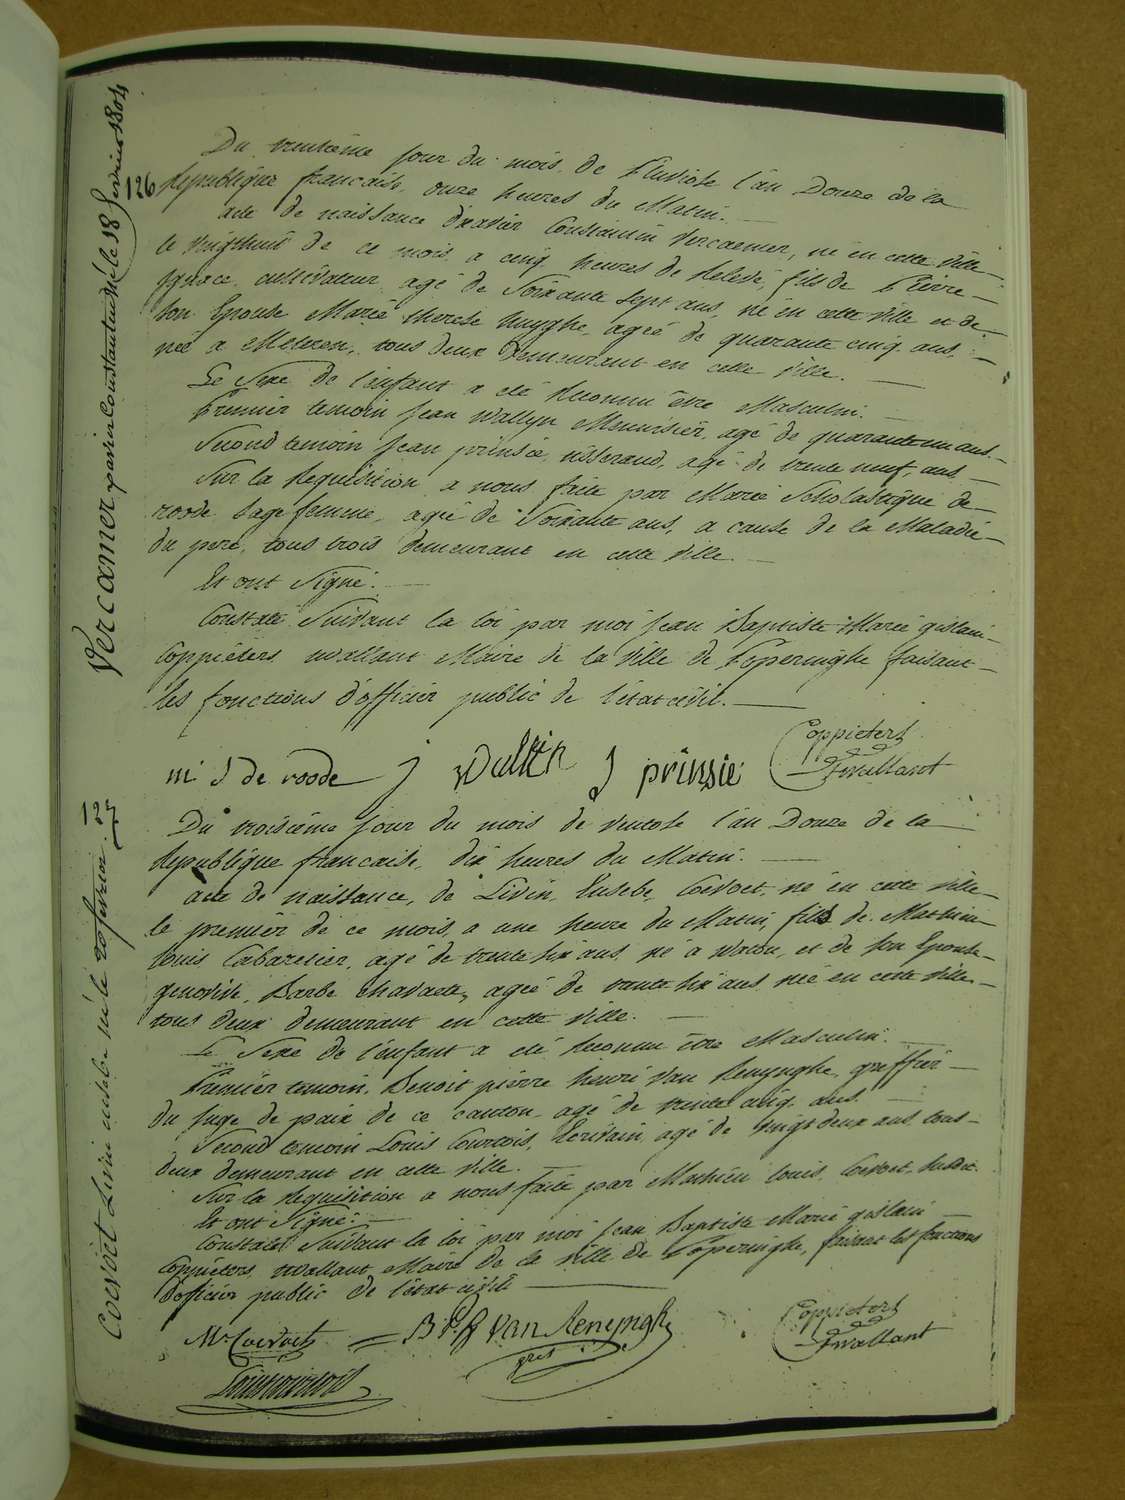 Vercamer xavier Constantin né le 18 fevrier 1804
126
Du trentième jour du mois de Pluviose l'an Douze de la
Republique française, onze heures du Matin.
acte de naissance d'xavier Constantin Vercaemer, né en cette ville
le vingthuit de ce mois, a cinq heures de Relevé, fils de Pierre
Ignace cultivateur, agé de Soixante sept ans, né en cette ville et de
son Epouse Marie therese huyghe, agée de quarante cinq ans,
née a Meteren, tous deux demeurant en cette ville.
Le Sexe de l'enfant a été Reconnu être Masculin.
Premier temoin Jean wallyn Menuisier, agé de quarante un ans
Second temoin Jean prinsie, tisserand, agé de trente neuf ans
Sur la Requisition a nous faite par Marie Scholastique de
roode sage femme, agée de Soixante ans, a cause de la Maladie
du pere, tous trois demeurant en cette ville.
Et ont Signé.
Constaté Suivant la loi par moi Jean Baptiste Marie gislain
Coppieters wallant Maire de la ville de Poperinghe faisant
les fonctions d'officier public de l'état civil.
m S de roode J Wallin J prinsie Coppieters
Twallant
127
Coevoet Livin eusebe né le 20 fevrier
Du troisième jour du mois de ventose l'an Douze de la
Republique française, dix heures du Matin.
acte de naissance, de Livin, Eusebe, Coevoet, né en cette ville
le premier de ce mois, a une heure du Matin, fils de Mathieu
Louis Cabaretier, agé de trente six ans né a watou, et de son Epouse
genovive, Barbe, agée de trente six ans née en cette ville,
tous deux demeurant en cette ville.
Le Sexe de l'enfant a été Reconnu être Masculin.
Premier temoin, Benoit pierre henri Van Renynghe, greffier
du Juge de paix de ce canton, agé de trente cinq ans.
Second temoin Louis Courtois, Ecrivain, agé de vingt deux ans, tous
deux demeurant en cette ville.
Sur la Requisition a nous faite par Mathieu Louis, Coevoet,
Et ont Signé.
Constaté Suivant la loi par moi Jean Baptiste Marie gislain
Coppieters wallant Maire de la ville de Poperinghe, faisant les fonctions
d'officier public de l'état civil
M. Coevoet B.P.H Van Renynghe Coppieters
Twallant